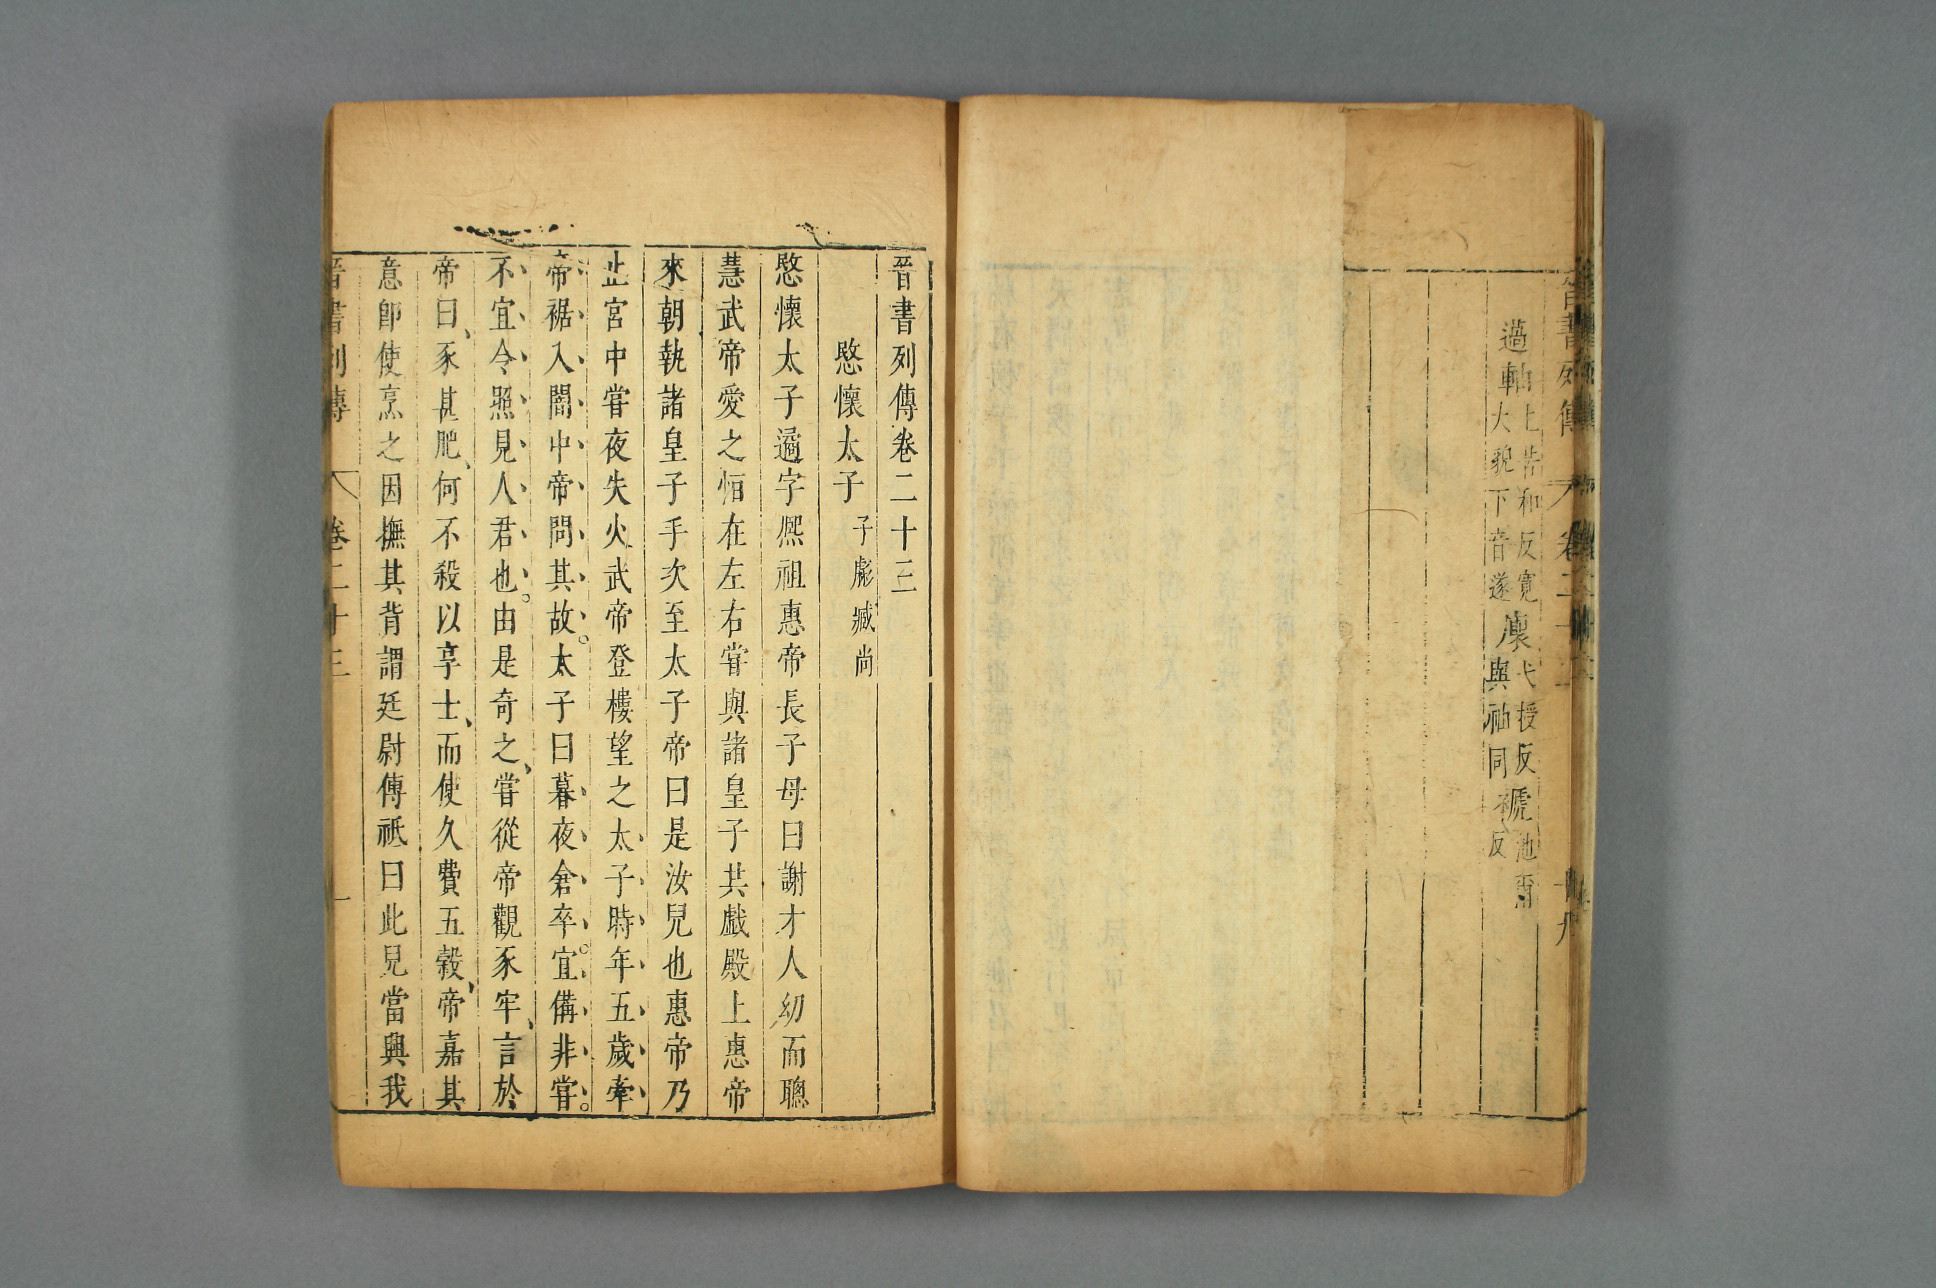 晉書列傳
過
軸上苦和反寬
大貌下音邃
虡弋授反
與袖同
禠池爾
反
晉書列傳卷二十三
愍懷太子子彪臧尚
愍懷太子遹字熈祖惠帝長子母曰謝才人幼而聰
慧武帝愛之恒在左右嘗與諸皇子共戲殿上惠帝
來朝執諸皇子手次至太子帝曰是汝兒也惠帝乃
止宮中嘗夜失火武帝登樓望之太子時年五歲牽
帝裾入闇中帝問其故太子曰暮夜倉卒宜備非嘗
不宜令照見人君也由是奇之嘗從帝觀豕牢言於
帝曰豕甚肥何不殺以享士而使久費五穀帝嘉其
意卽使烹之因撫其背謂廷尉傅祗曰此兒當興我
晉書列傳 卷二十三 一